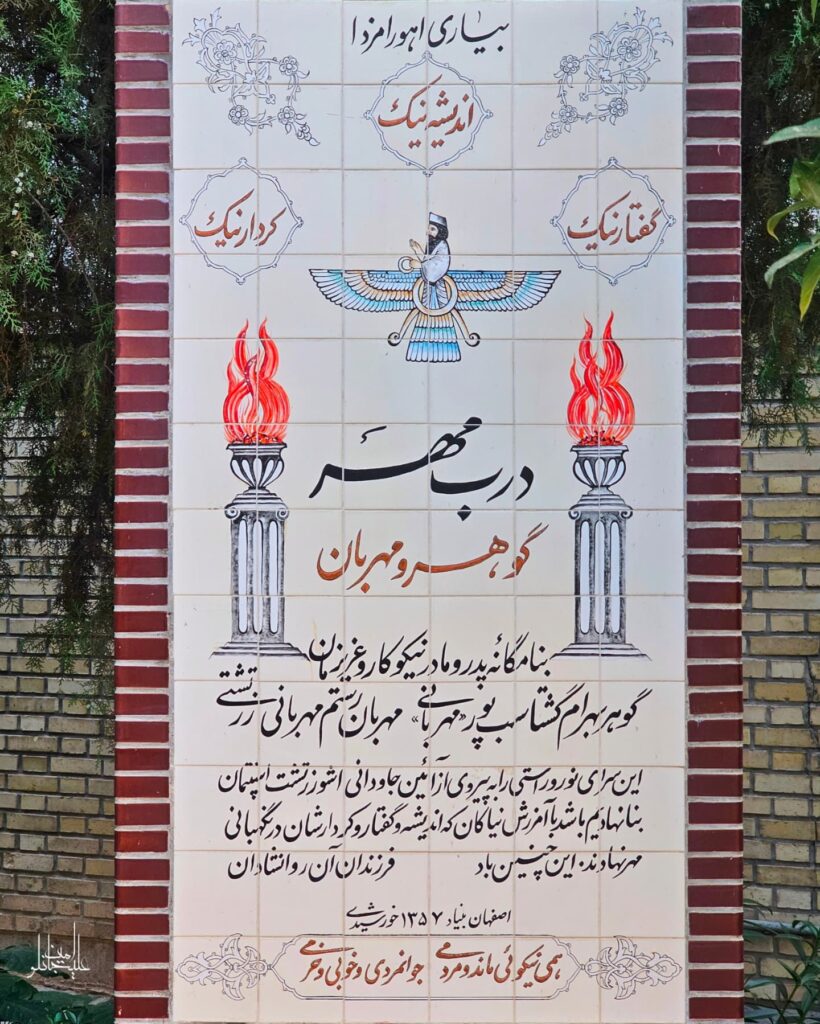 بیاری اهورامزدا
اندیشه نیک
گفتار نیک
کردار نیک
درب مهر
گوهر و مهربان
بنامگانه پدر و مادر نیکوکار و عزیزمان
گوهر بهرام گشتاسب پور «مهربانی» مهربان رستم مهربانی زرتشتی
این سرای نور و راستی را به پیروی از آئین جاودانی اشوزرتشت اسپنتمان
بنا نهادیم باشد با آمرزش نیاکان که اندیشه و گفتار و کردارشان در نگهبانی
مهر نهادند. این چنین باد فرزندان آن روانشادان
اصفهان بنیاد ۱۳۵۷ خورشیدی
همی نیکوئی ماند و مردمی جوانمردی و خوبی و خرمی